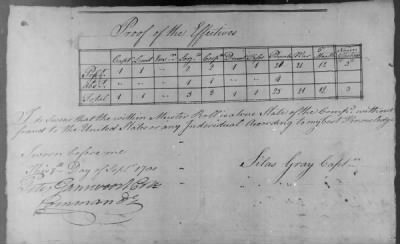 Proof of the Effectives
Capt Lieut Ens Serg Corp Drum Fifes Privates War
Pres 1 1 2 2 1 1 21 12 3
Abs 1 4
Total 1 1 3 2 1 1 25 21 12 3
I do Swear that the within Muster Roll is a true State of the Compy without
fraud to the United States or any Individual According to my best Knowledge
Sworn before me
This Day of Sept
Silas Gray Captn
Peter Gansevoort
Commandt